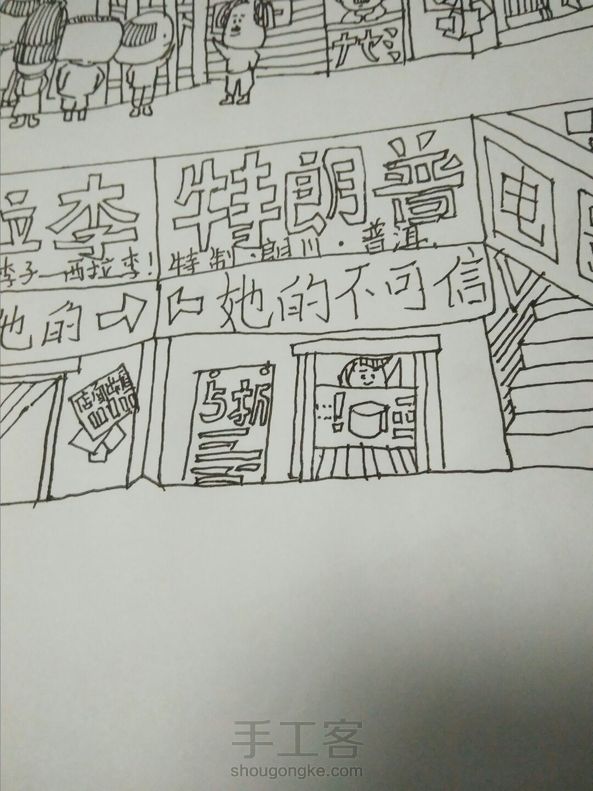 李 特朗普
李子一西拉李! 特制·朗川·普洱.
的 她的不可信
电
5折
手工客
shougongke.com